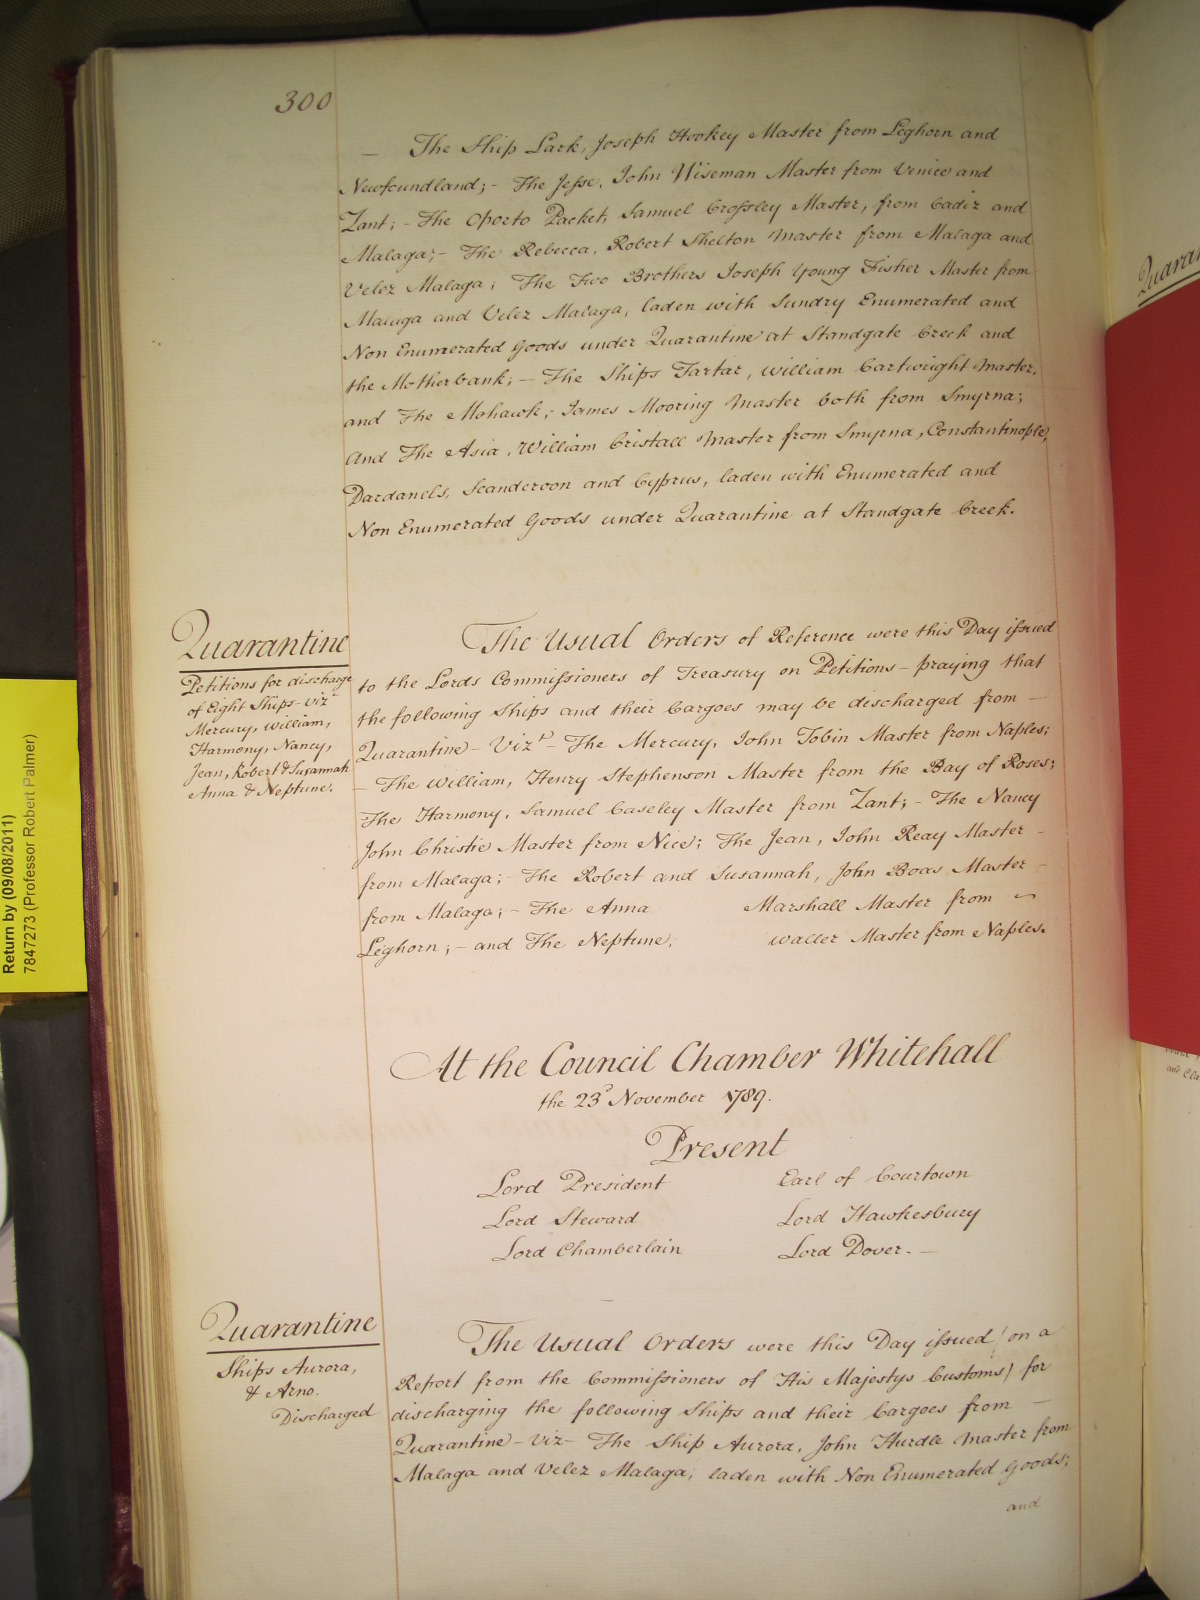 300
— The Ship Lark, Joseph Hookey Master from Leghorn and
Newfoundland; - The Jesse, John Wiseman Master from Venice and
Zant; - The Oporto Packet, Samuel Crossley Master, from Cadiz and
Malaga; - The Rebecca, Robert Shelton Master from Malaga and
Velez Malaga; The Two Brothers Joseph Young Fisher Master from
Malaga and Velez Malaga, laden with Sundry Enumerated and
Non Enumerated Goods under Quarantine at Standgate Creek and
the Motherbank; — The Ships Tartar, William Cartwright Master,
and The Mohawk, James Mooring Master both from Smyrna;
And The Asia, William Cristall Master from Smyrna, Constantinople,
Dardanels, Scanderoon and Cyprus, laden with Enumerated and
Non Enumerated Goods under Quarantine at Standgate Creek.
Quarantine
Petitions for discharge
of Eight Ships - vizt
Mercury, William,
Harmony, Nancy,
Jean, Robert & Susannah
Anna & Neptune.
The Usual Orders of Reference were this Day issued
to the Lords Commissioners of Treasury on Petitions - praying that
the following Ships and their Cargoes may be discharged from —
Quarantine - Vizt - The Mercury, John Tobin Master from Naples;
— The William, Henry Stephenson Master from the Bay of Roses;
The Harmony, Samuel Caseley Master from Zant; - The Nancy
John Christie Master from Nice; The Jean, John Reay Master -
from Malaga; - The Robert and Susannah, John Boas Master -
from Malaga; - The Anna Marshall Master from ~
Leghorn; - and The Neptune, Waller Master from Naples.
At the Council Chamber Whitehall
the 23d November 1789.
Present
Lord President Earl of Courtown
Lord Steward Lord Hawkesbury
Lord Chamberlain Lord Dover. —
Quarantine
Ships Aurora,
& Arno.
Discharged
The Usual Orders were this Day issued (on a
Report from the Commissioners of His Majestys Customs) for
discharging the following Ships and their Cargoes from —
Quarantine - Viz - The Ship Aurora, John Hurdle Master from
Malaga and Velez Malaga, laden with Non Enumerated Goods;
and
Return by (09/08/2011)
7847273 (Professor Robert Palmer)